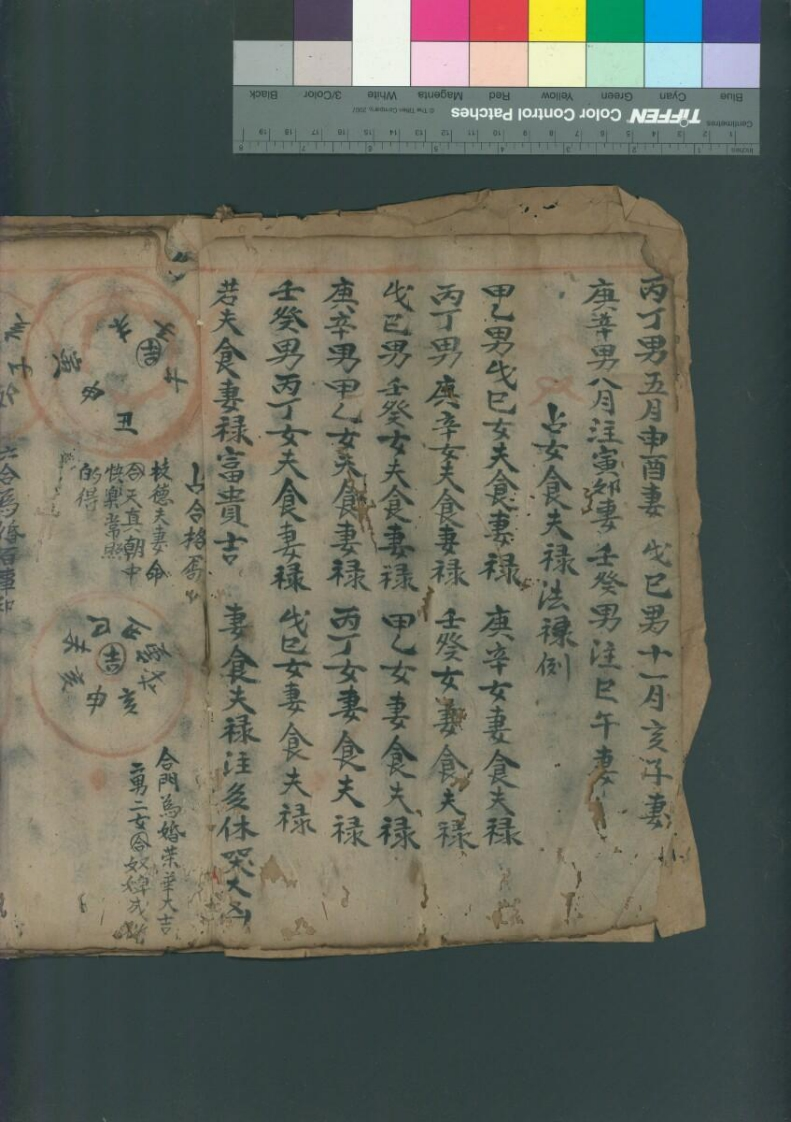 丙丁男五月申酉妻 戊巳男十一月亥子妻
庚辛男八月注寅卯妻 壬癸男注巳午妻
占女食夫禄法禄例
甲乙男戊巳女夫食妻禄 庚辛女妻食夫禄
丙丁男庚辛女夫食妻禄 壬癸女妻食夫禄
戊巳男壬癸女夫食妻禄 甲乙女妻食夫禄
庚辛男甲乙女夫食妻禄 丙丁女妻食夫禄
壬癸男丙丁女夫食妻禄 戊巳女妻食夫禄
若夫食妻禄富貴吉 妻食夫禄注多休哭大凶
占合格
夫妻命
合天真朝中
快樂常照
的得
吉
丑
寅
申
吉
巳
亥
申
亥
戌
合門為婚荣華大吉
二男二女合奴婢成
六合為婚百
Blue
Cyan
Green
Yellow
Red
Magenta
White
3/Color
Black
TIFFEN Color Control Patches
© The Tiffen Company, 2007
Centimetres
1 2 3 4 5 6 7 8 9 10 11 12 13 14 15 16 17 18 19
Inches 1 2 3 4 5 6 7 8